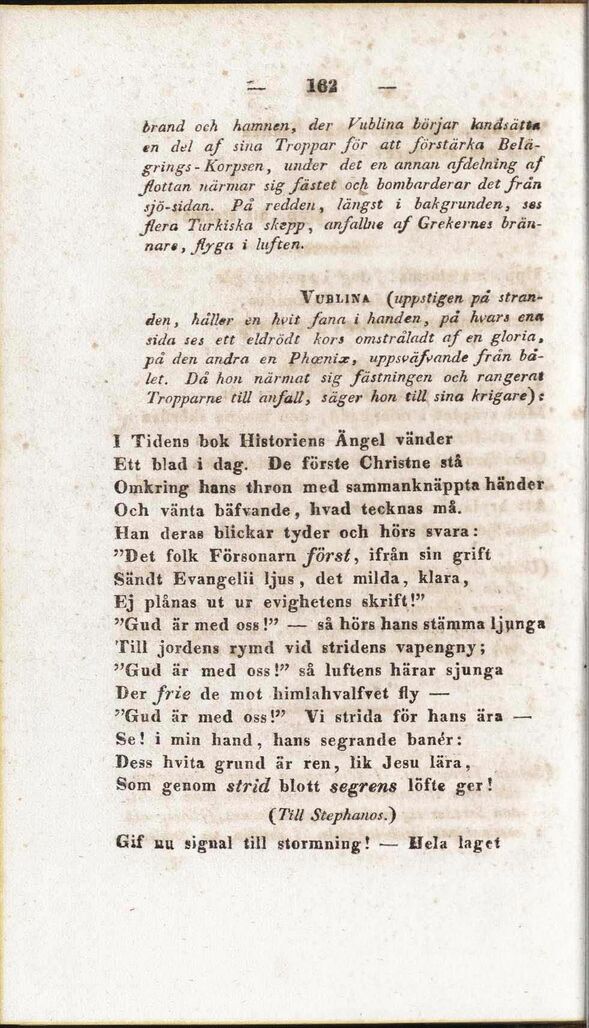 — 162 —
brand och hamnen, der Vublina börjar landsätta
en del af sina Troppar för att förstärka Belä-
grings-Korpsen, under det en annan afdelning af
flottan närmar sig fästet och bombarderar det från
sjö-sidan. På redden, längst i bakgrunden, ses
flera Turkiska skepp, anfallne af Grekernes brän-
nare, flyga i luften.
VUBLINA (uppstigen på stran-
den, håller en hvit fana i handen, på hvars ena
sida ses ett eldrödt kors omstråladt af en gloria,
på den andra en Phœnix, uppsväfvande från bå-
let. Då hon närmat sig fästningen och rangerat
Tropparne till anfall, säger hon till sina krigare):
I Tidens bok Historiens Ängel vänder
Ett blad i dag. De förste Christne stå
Omkring hans thron med sammanknäppta händer
Och vänta bäfvande, hvad tecknas må.
Han deras blickar tyder och hörs svara:
”Det folk Försonarn först, ifrån sin grift
Sändt Evangelii ljus, det milda, klara,
Ej plånas ut ur evighetens skrift!”
”Gud är med oss!” — så hörs hans stämma ljunga
Till jordens rymd vid stridens vapengny;
”Gud är med oss!” så luftens härar sjunga
Der frie de mot himlahvalfvet fly —
”Gud är med oss!” Vi strida för hans ära —
Se! i min hand, hans segrande banér:
Dess hvita grund är ren, lik Jesu lära,
Som genom strid blott segrens löfte ger!
(Till Stephanos.)
Gif nu signal till stormning! — Hela laget